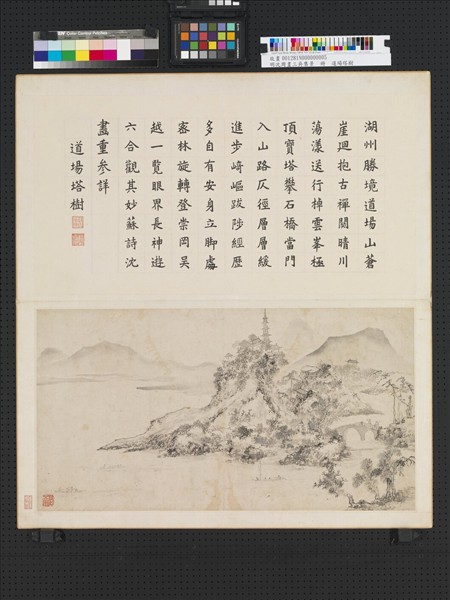 湖州勝境道場山蒼
崖迴抱古禪關晴川
蕩漾送行棹雲峯極
頂寶塔攀石橋當門
入山路仄徑層層緩
進步崎嶇跋陟經歷
多自有安身立腳處
密林旋轉登崇岡吳
越一覽眼界長神遊
六合觀其妙蘇詩沈
畫重參詳
道場塔樹